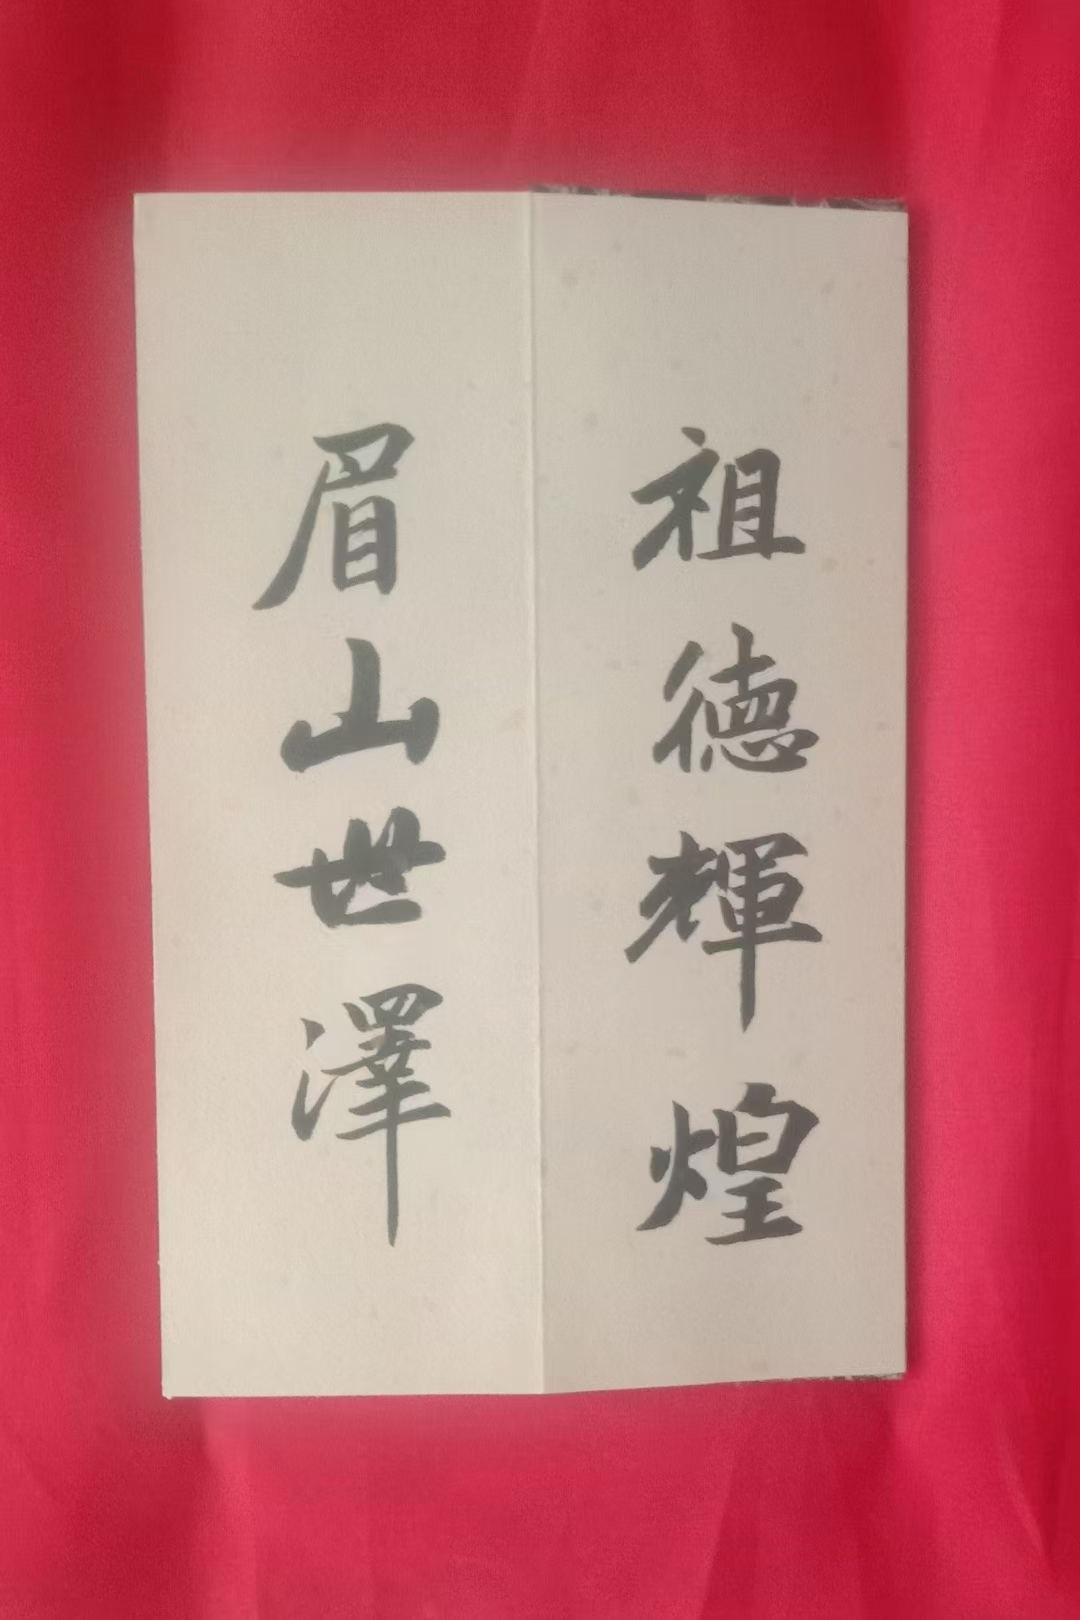 祖德輝煌
眉山世澤